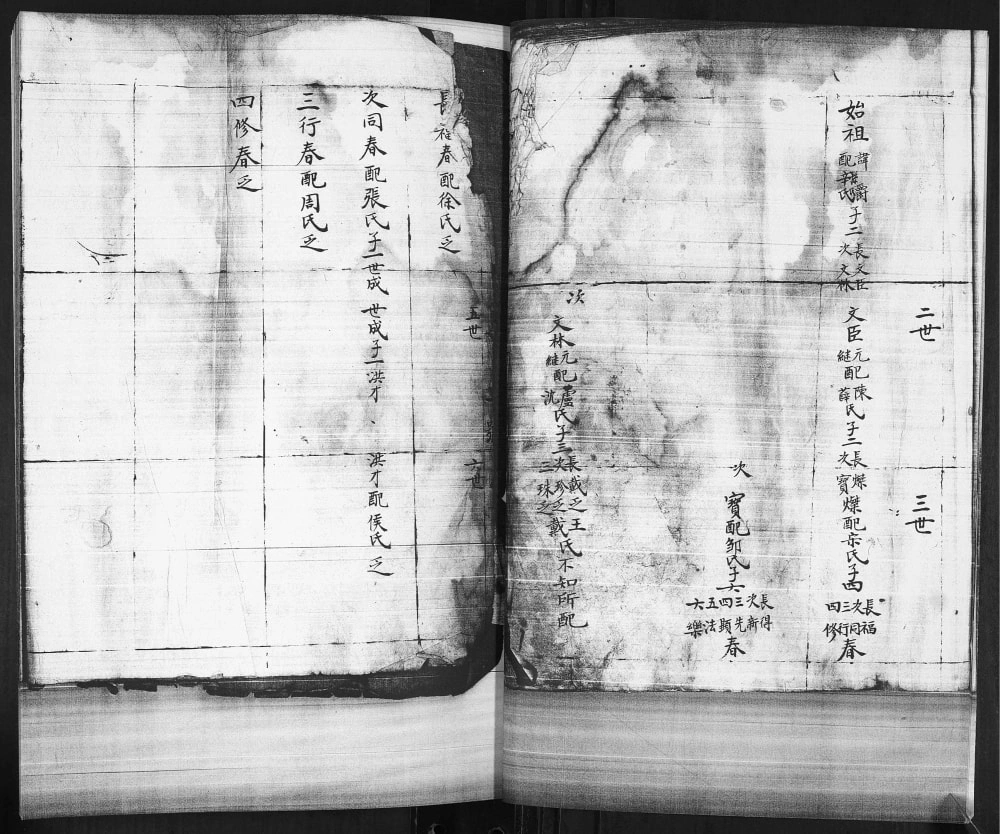 二世
三世
始祖
諱
爵
配
氏
子二
長文臣
次文林
文臣
元配陳
繼配薛
氏子二
長燦
次寶
燦配宗氏子四
長福
次同
三行
四修
春
次
寶配邹氏子六
長得
次新
三先
四顯
五法
六樂
春
次
文林
元配盧
繼配沈
氏子三
長戴乏
次珍乏
三珠乏
王戴氏不知所配
長福春配徐氏乏
五世
六世
次同春配張氏子一世成
世成子一洪才
洪才配侯氏乏
三行春配周氏乏
四修春乏